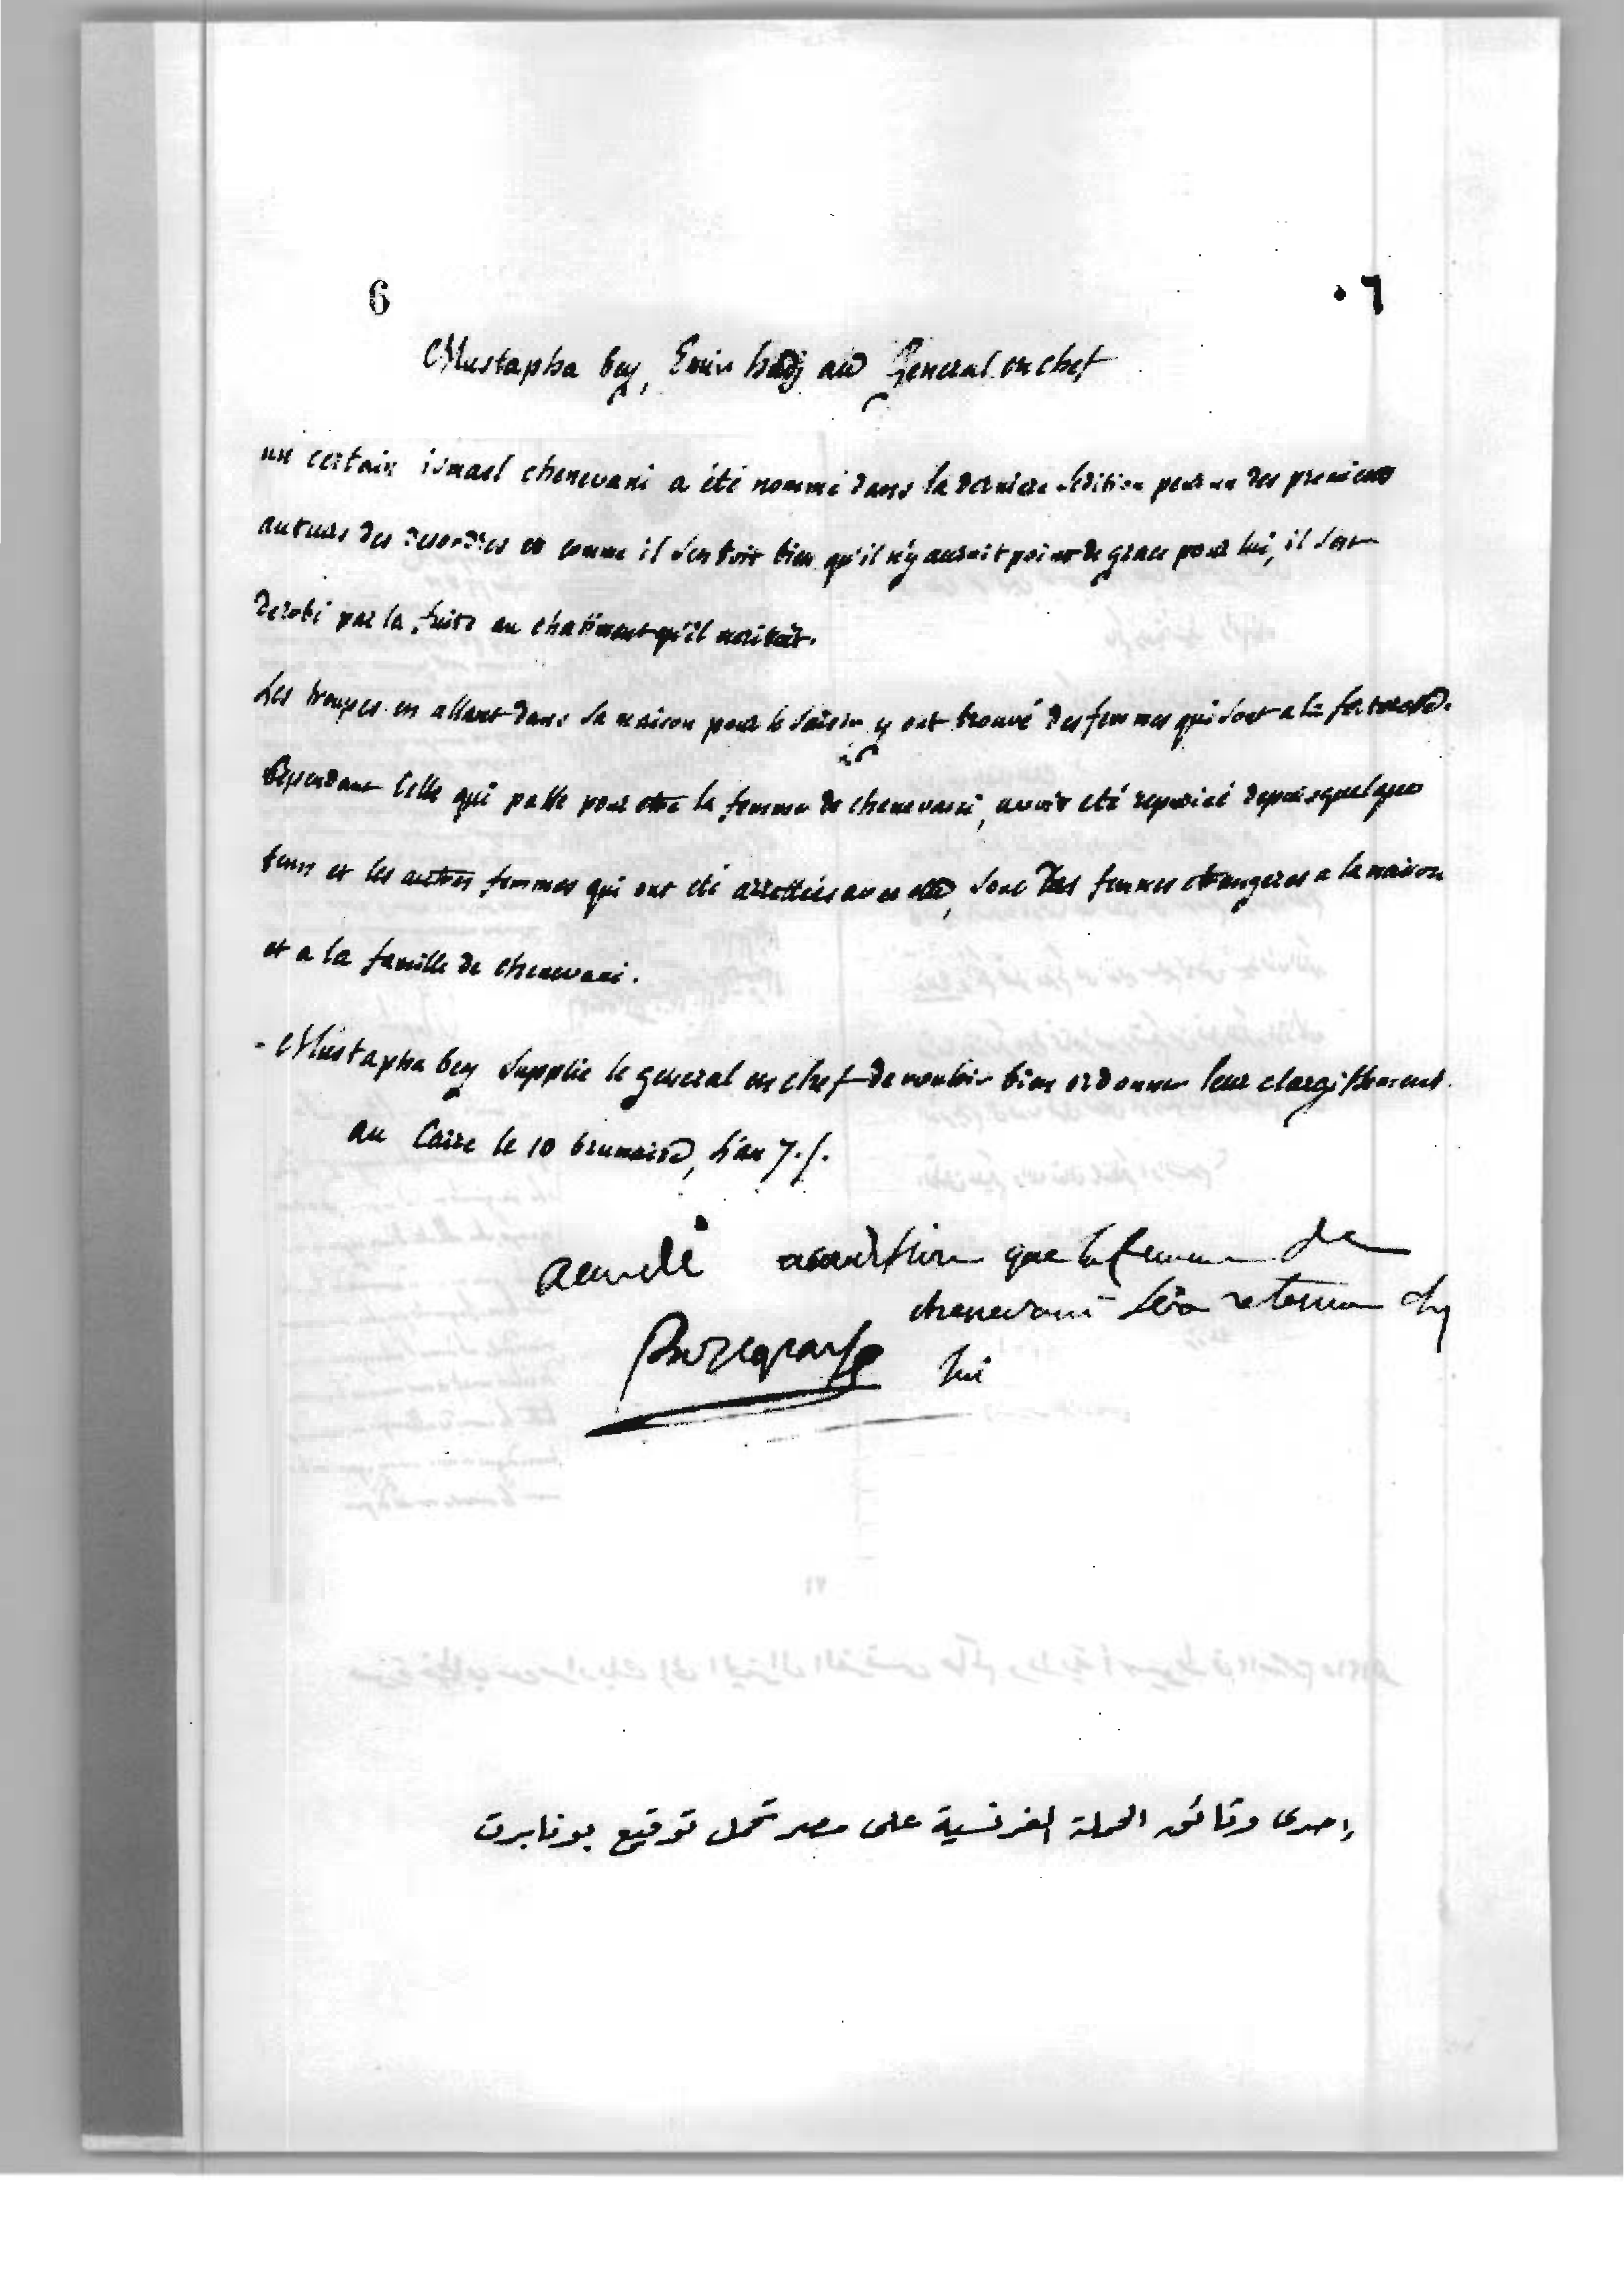 6
٠٦
Mustapha bey, Emir hadj au General en chef
un certain ismael chenevani a été nommé dans la derniere sedition pour un des premiers
auteurs des desordres et comme il sentoit bien qu'il n'y auroit point de grace pour lui, il s'est
derobé par la fuite au chatiment qu'il meritoit.
Les troupes en allant dans sa maison pour le saisir y ont trouvé des femmes qui sont a la forteresse.
Cependant celle qui passe pour etre la femme de chenevani, avoit été repudiée depuis quelques
tems et les autres femmes qui ont été arrettées avec elle, sont des femmes etrangeres a la maison
et a la famille de chenevani.
- Mustapha bey supplie le general en chef de vouloir bien ordonner leur elargissement.
au Caire le 10 brumaire, l'an 7.
accordé a condition que la femme de
chenevani sera retenue
Bonaparte
إحدى وثائق الحملة الفرنسية على مصر تحمل توقيع بونابرت